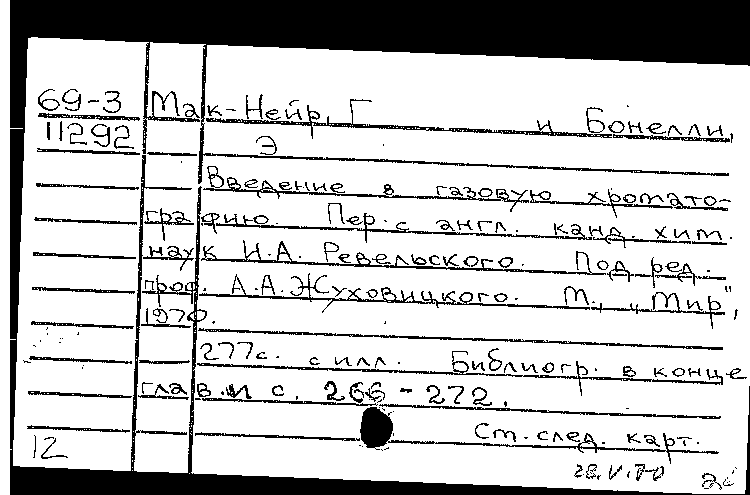 69-3 Мак-Нейр, Г и Бонелли,
11292 Э
Введение в газовую хромато-
графию. Пер. с англ. канд. хим.
наук И.А. Ревельского. Под ред.
проф. А.А.Жуховицкого. М., „Мир",
1970.
277с. с илл. Библиогр. в конце
глав. и с. 266-272.
См. след. карт.
12
28.V.70